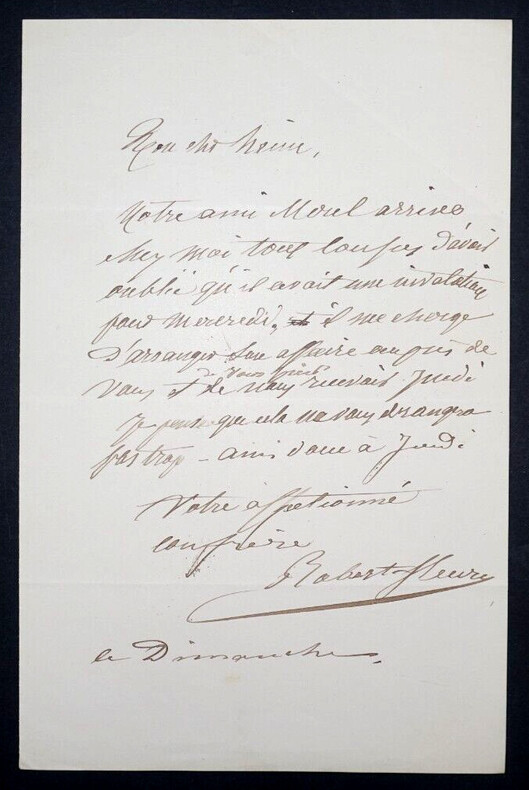 Mon cher Heim,
Notre ami Morel arrive
chez moi tout confus d'avoir
oublié qu'il avait une invitation
pour mercredi, il me charge
D'arranger son affaire auprès de
vous
et de nous recevoir Jeudi
je pense que cela ne vous derangera
pas trop - ainsi donc à Jeudi
Votre affectionné
confrère
Robert-Fleury
ce Dimanche,